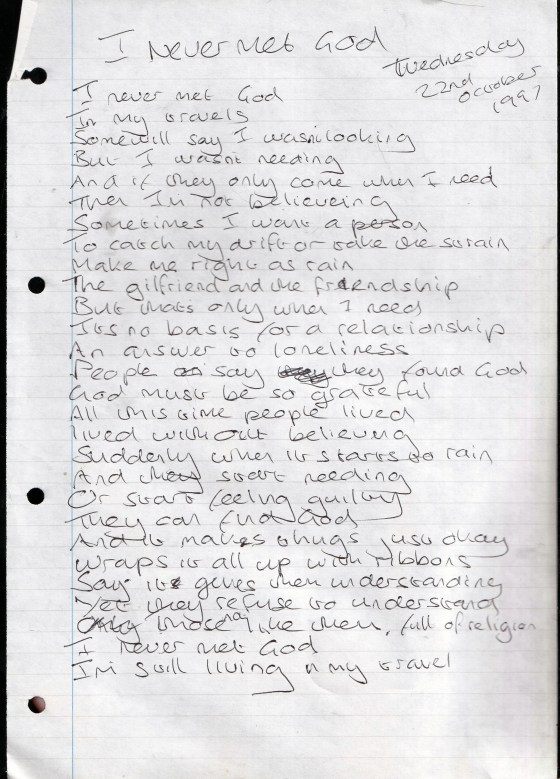 I Never Met God
Wednesday
22nd
October
1997
I never met God
In my travels
Some will say I wasn't looking
But I wasn't needing
And if they only come when I need
Then Im not believeing
Sometimes I want a person
To catch my drift or take the strain
Make me right as rain
The gilfriend and the friendship
But thats only when I need
Its no basis for a relationship
An answer to loneliness
People say they found God
God must be so grateful
All this time people lived
lived without believing
Suddenly when it starts to rain
And they start needing
Or start feeling guilty
They can find God
And it makes things just okay
wraps it all up with ribbons
Say it gives them understanding
Yet they refuse to understand
Only those like them, full of religion
I never met God
Im still living in my travel